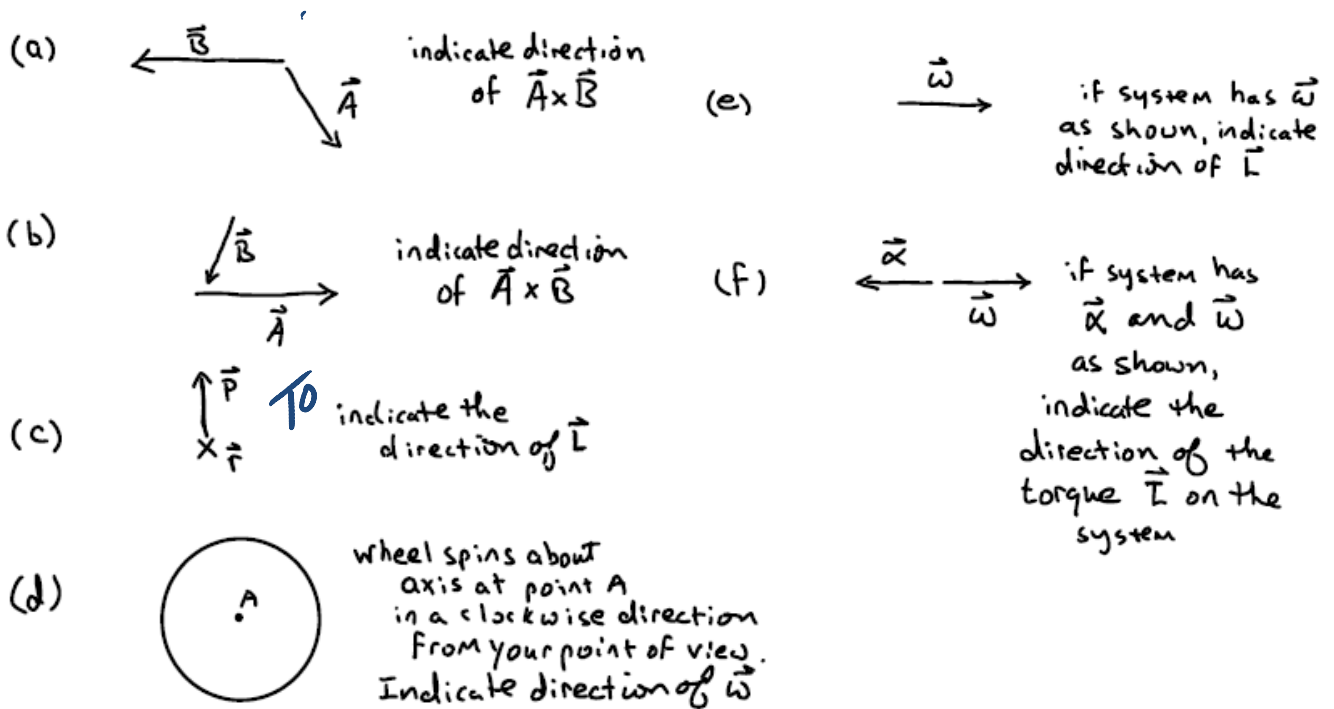 (a)
B⃗
A⃗
indicate direction
of A⃗ x B⃗
(b)
B⃗
A⃗
indicate direction
of A⃗ x B⃗
(c)
p⃗
x r⃗
TO
indicate the
direction of L⃗
(d)
A
wheel spins about
axis at point A
in a clockwise direction
from your point of view.
Indicate direction of ω⃗
(e)
ω⃗
if system has ω⃗
as shown, indicate
direction of L⃗
(f)
α⃗
ω⃗
if system has
α⃗ and ω⃗
as shown,
indicate the
direction of the
torque τ⃗ on the
system